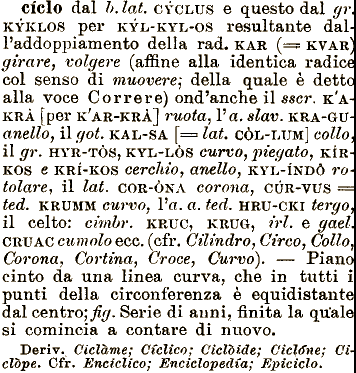 cíclo dal b. lat. CÝCLUS e questo dal gr.
KÝKLOS per KÝL-KYL-OS resultante dal-
l'addoppiamento della rad. KAR (= KVAR)
girare, volgere (affine alla identica radice
col senso di muovere; della quale è detto
alla voce Correre) ond'anche il sscr. K'A-
KRÀ [per K'AR-KRÀ] ruota, l'a. slav. KRA-GU-
anello, il got. KAL-SA [= lat. CÒL-LUM] collo,
il gr. HYR-TÒS, KYL-LÒS curvo, piegato, KÍR-
KOS e KRÍ-KOS cerchio, anello, KYL-ÍNDÔ ro-
tolare, il lat. COR-ÒNA corona, CÚR-VUS =
ted. KRUMM curvo, l'a. a. ted. HRU-CKI tergo,
il celto: cimbr. KRUC, KRUG, irl. e gael.
CRUAC cumolo ecc. (cfr. Cilindro, Circo, Collo,
Corona, Cortina, Croce, Curvo). — Piano
cinto da una linea curva, che in tutti i
punti della circonferenza è equidistante
dal centro; fig. Serie di anni, finita la quale
si comincia a contare di nuovo.
Deriv. Ciclàme; Cíclico; Ciclòide; Ciclóne; Ci-
clòpe. Cfr. Enciclico; Enciclopedía; Epiciclo.